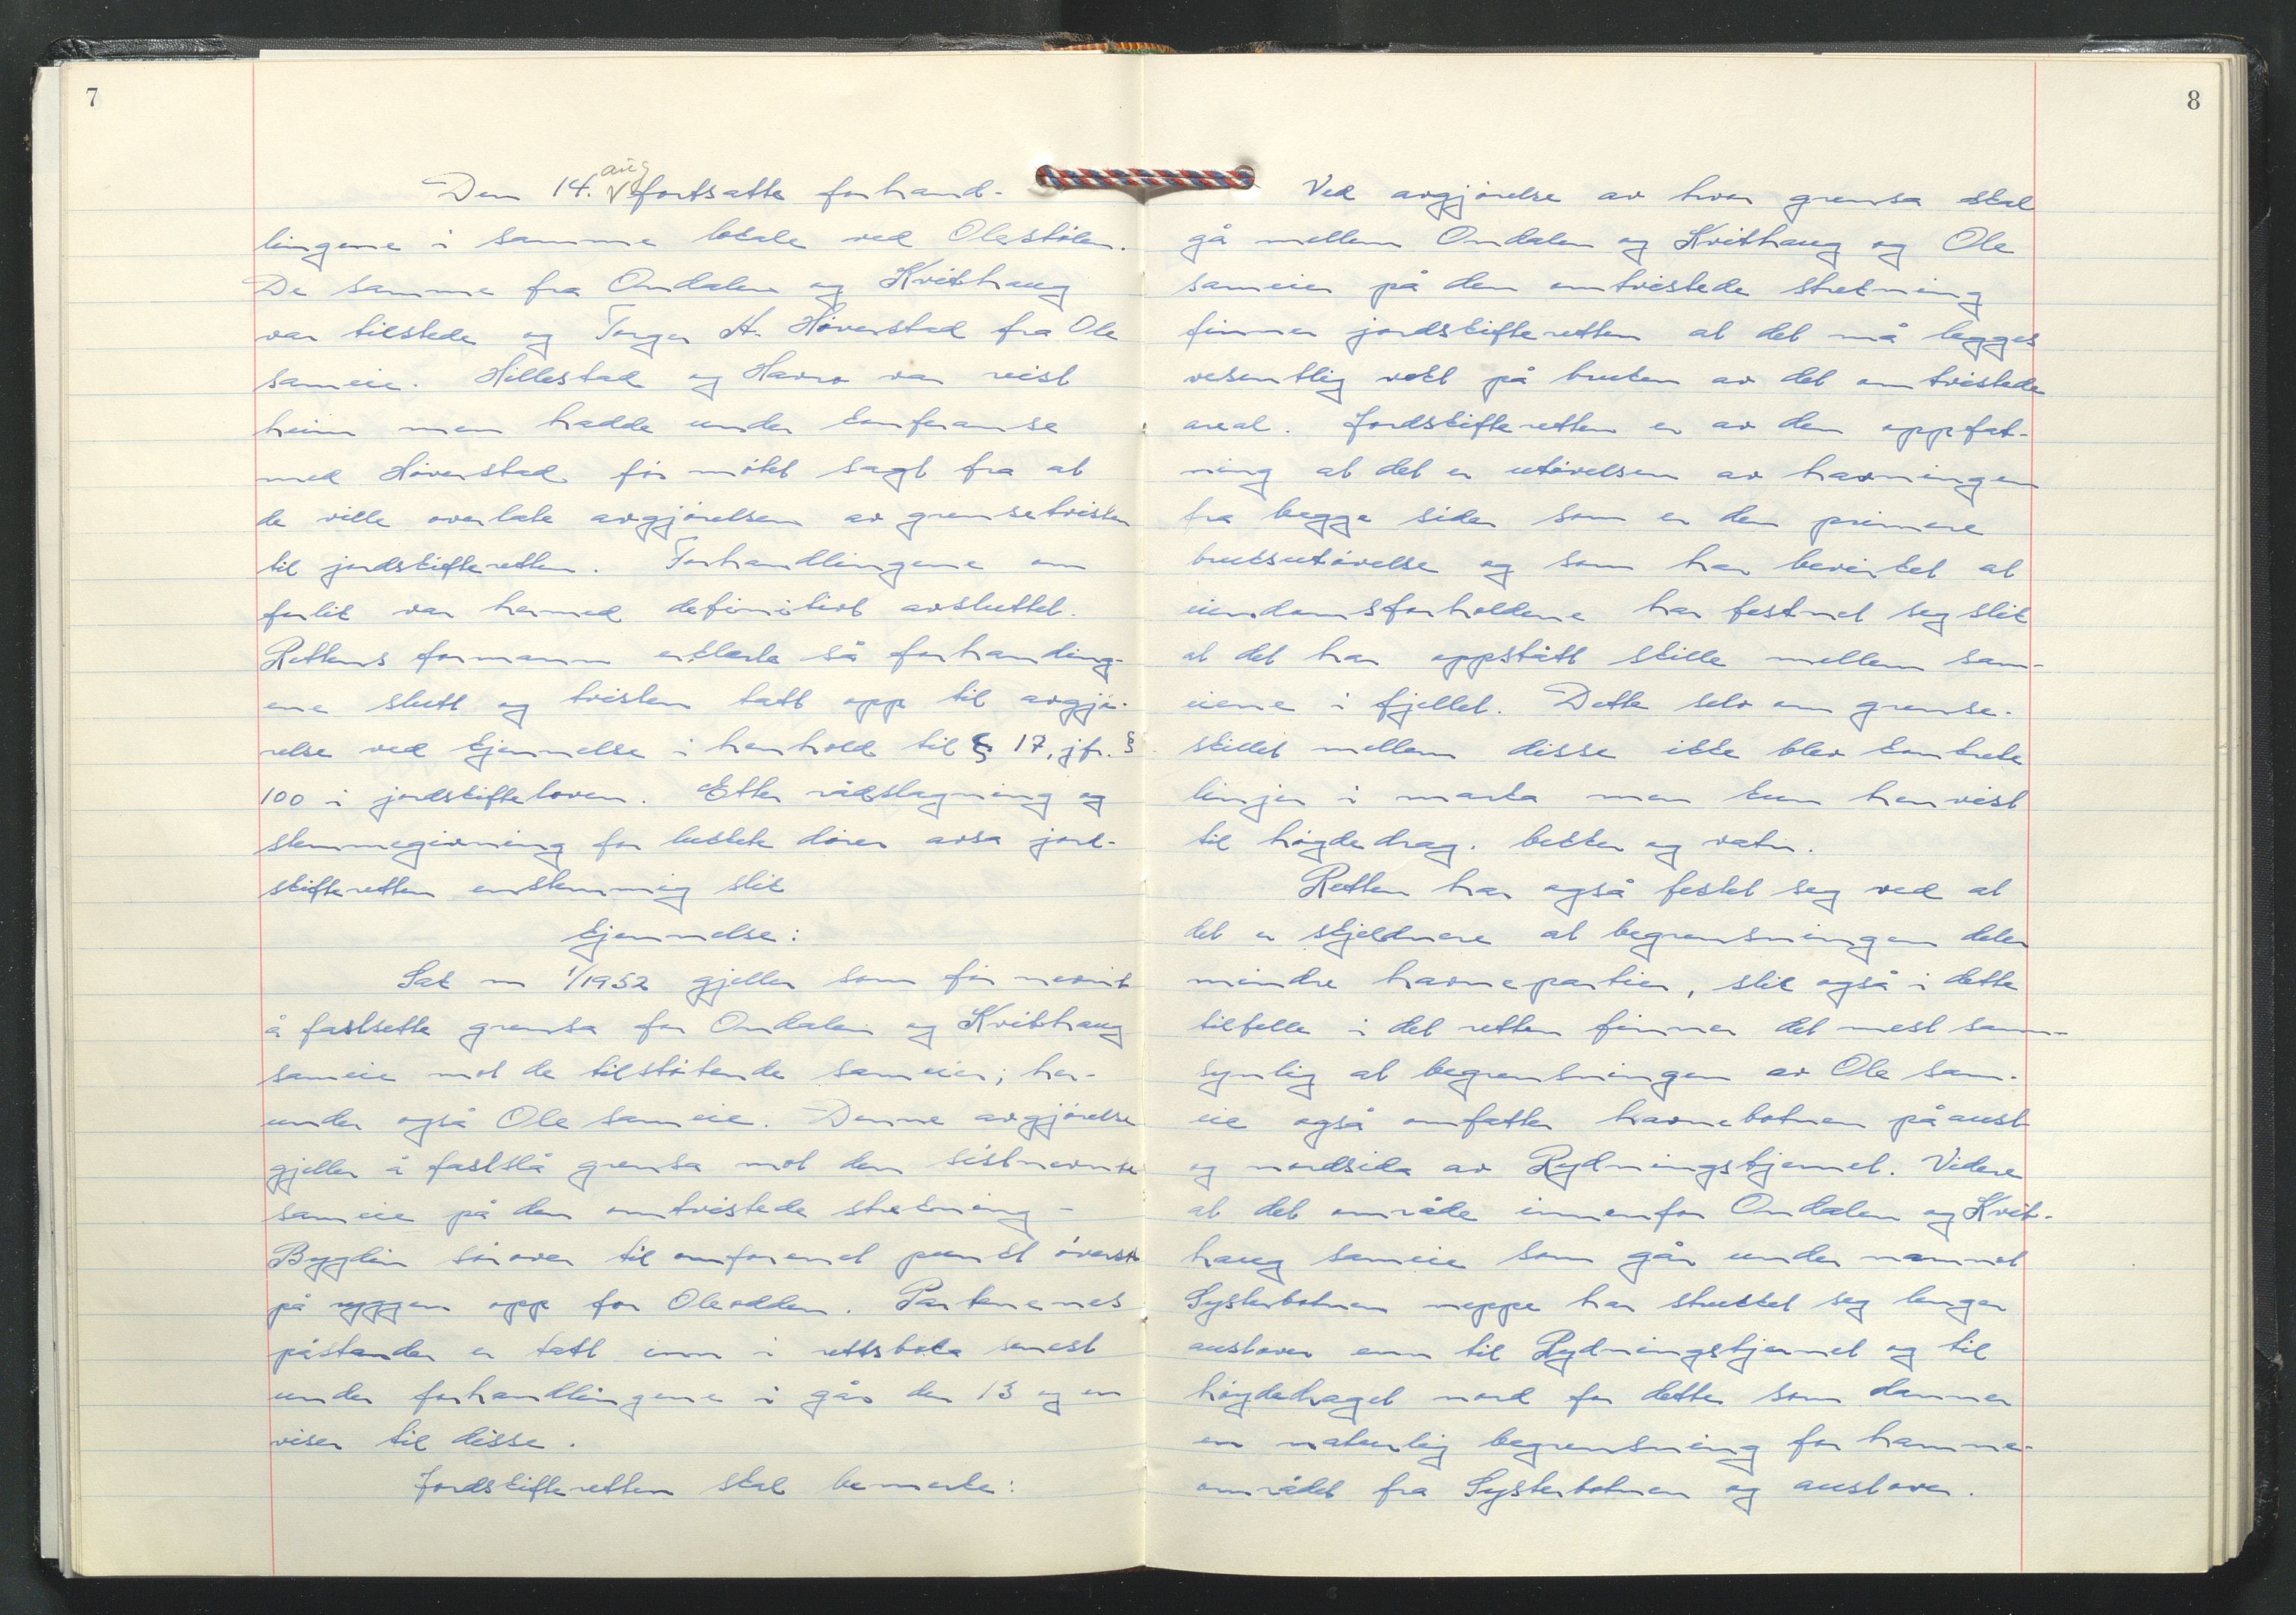 7
Den 14. aug fortsatte forhand-
lingene i samme lokale ved Olestølen.
De samme fra Ondalen og Kvithaug
var tilstede og Torger H. Høverstad fra Ole
sameie. Hillestad og Havro var reist
heim men hadde under konferanse
med Høverstad før møtet sagt fra at
de ville overlate avgjørelsen av grensetvisten
til jordskifteretten. Forhandlingene om
forlik var hermed definitivt avsluttet.
Rettens formann erklærte så forhandling-
ene slutt og tvisten tatt opp til avgjø-
relse ved kjennelse i henhold til § 17, jfr. §
100 i jordskifteloven. Etter rådslagning og
stemmegivning for lukkete dører avsa jord-
skifteretten enstemmig slik
kjennelse:
Sak nr 1/1952 gjeller som før nevnt
å fastsette grensa for Ondalen og Kvithaug
sameie mot de tilstøtende sameier; her-
under også Ole sameie. Denne avgjørelse
gjeller å fastslå grensa mot den sistnevnte
sameie på den omtvistede strekning -
Bygdin sørover til omforenet punkt øverst
på ryggen opp for Oleodden. Partenenes
påstander er tatt inn i rettsboka senest
under forhandlingene i går den 13 og en
viser til disse.
Jordskifteretten skal bemerke:
8
Ved avgjørelse av hvor grensa skal
gå mellem Ondalen og Kvithaug og Ole
sameier på den omtvistede strekning
finner jordskifteretten at det må legges
vesentlig vekt på bruken av det omtvistede
areal. Jordskifteretten er av den oppfat-
ning at det er utøvelsen av havningen
fra begge sider som er den primære
bruksutøvelse og som har bevirket at
eiendomsforholdene har festnet seg slik
at det har oppstått skille mellem sam-
eiene i fjellet. Dette selv om grense-
skillet mellem disse ikke blev konkrete
linjer i marka men kun henvist
til høgdedrag, bekker og vatn.
Retten har også festet seg ved at
det er skjeldnere at begrensningen deler
mindre havnepartier, slik også i dette
tilfelle i det retten finner det mest sann-
synlig at begrensningen av Ole sam-
eie også omfatter havnebotnen på aust
og nordsida av Rydningstjernet. Videre
at det område innenfor Ondalen og Kvit-
haug sameie som går under namnet
Systerbotnen neppe har strukket seg lenger
austover enn til Rydningstjernet og til
høgdedraget nord for dette som danner
en naturlig begrensning for hamne-
området fra Systerbotnen og austover.